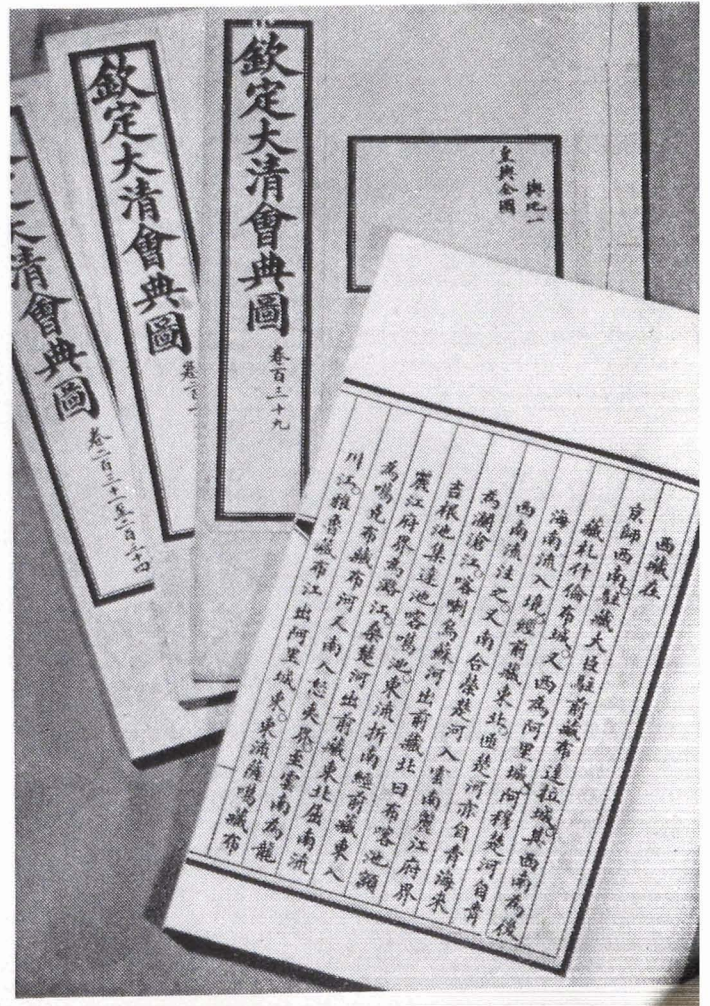 欽定大清會典圖
卷百三十九
輿地一
皇輿全圖
欽定大清會典圖
卷二百
大清會典圖
卷二百三十一至二百三十四
西藏在
京師西南。駐藏大臣駐前藏布達拉城。其西南為後
藏札什倫布城。又西為阿里城。阿穆楚河自青
海南流入境。經前藏東北。匝楚河亦自青海來
西南流注之。又南合鄂穆楚河入雲南麗江府界
為瀾滄江。喀喇烏蘇河出前藏北曰布喀池額
吉根池集達池喀噶池。東流折南經前藏東入
麗江府界為潞江。桑楚河出前藏東北屈南流
為噶克布藏布河又南入怒夷界。至雲南為龍
川江。雅魯藏布江出阿里城東。東流薩噶藏布